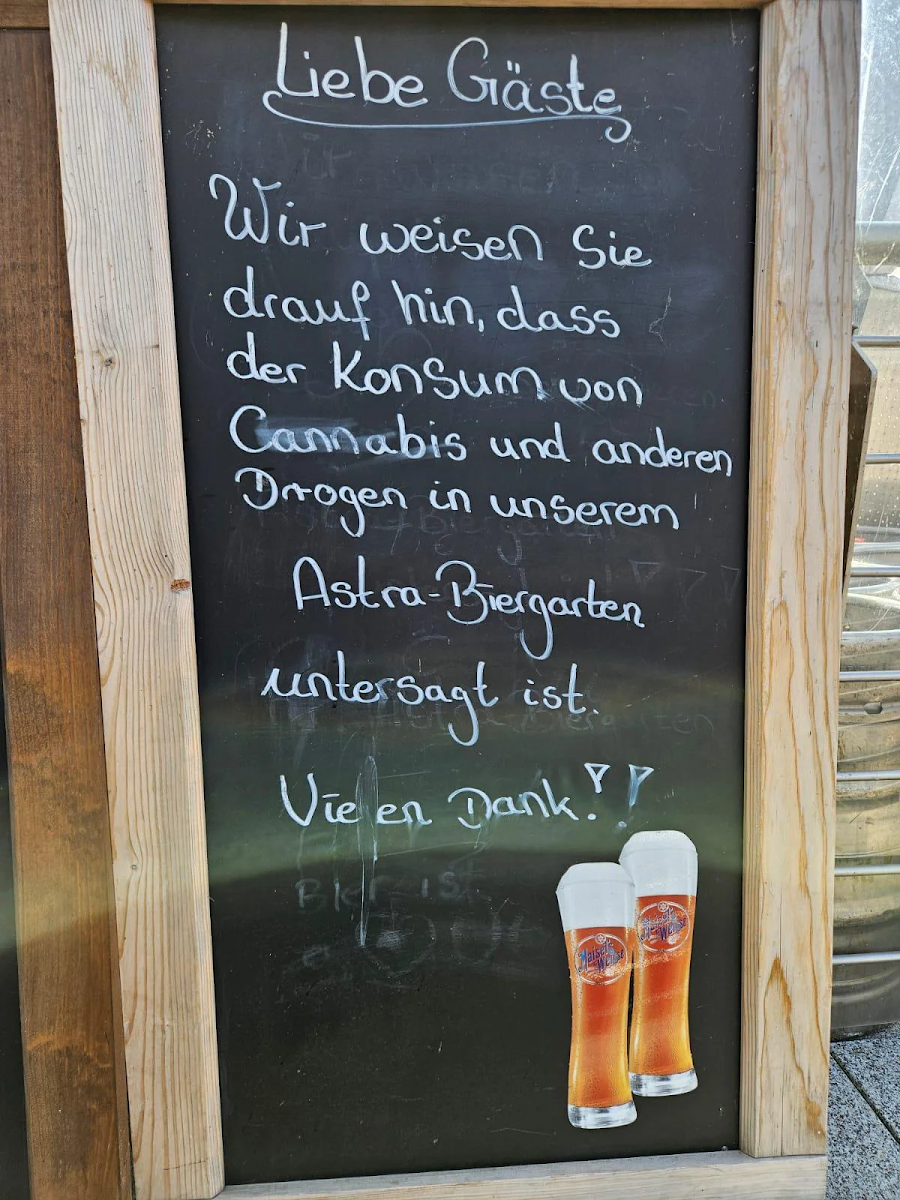 Liebe Gäste
Wir weisen Sie
drauf hin, dass
der Konsum von
Cannabis und anderen
Drogen in unserem
Astra-Biergarten
untersagt ist.
Vielen Dank!!
Bier ist
Maisel's
Weisse
Maisel's
Weisse